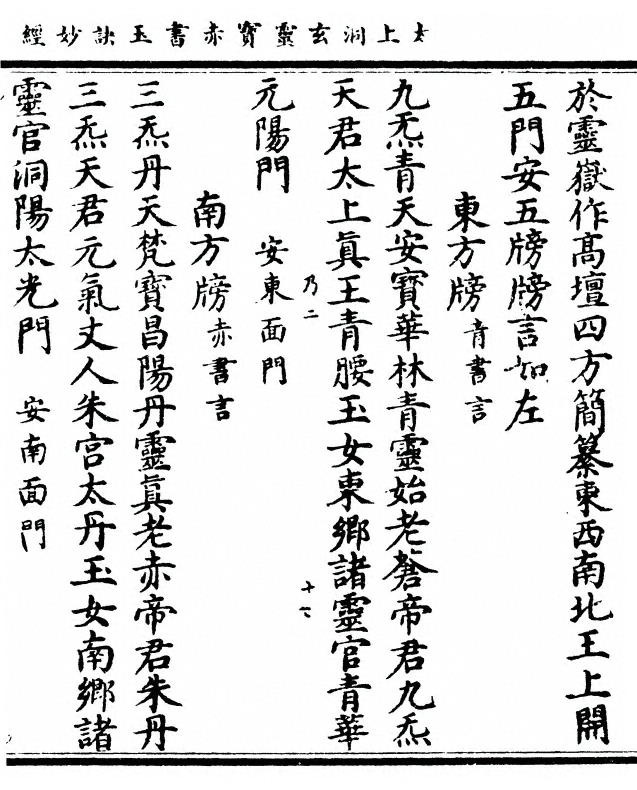 太上洞玄靈寶赤書玉訣妙經
於靈嶽作髙壇四方簡纂東西南北王上開
五門安五牓牓言如左
東方牓青書言
九炁青天安寶華林青靈始老蒼帝君九炁
天君太上眞王青腰玉女東鄉諸靈官青華
乃二 十六
元陽門 安東面門
南方牓赤書言
三炁丹天梵寶昌陽丹靈眞老赤帝君朱丹
三炁天君元氣丈人朱宮太丹玉女南鄉諸
靈官洞陽太光門 安南面門